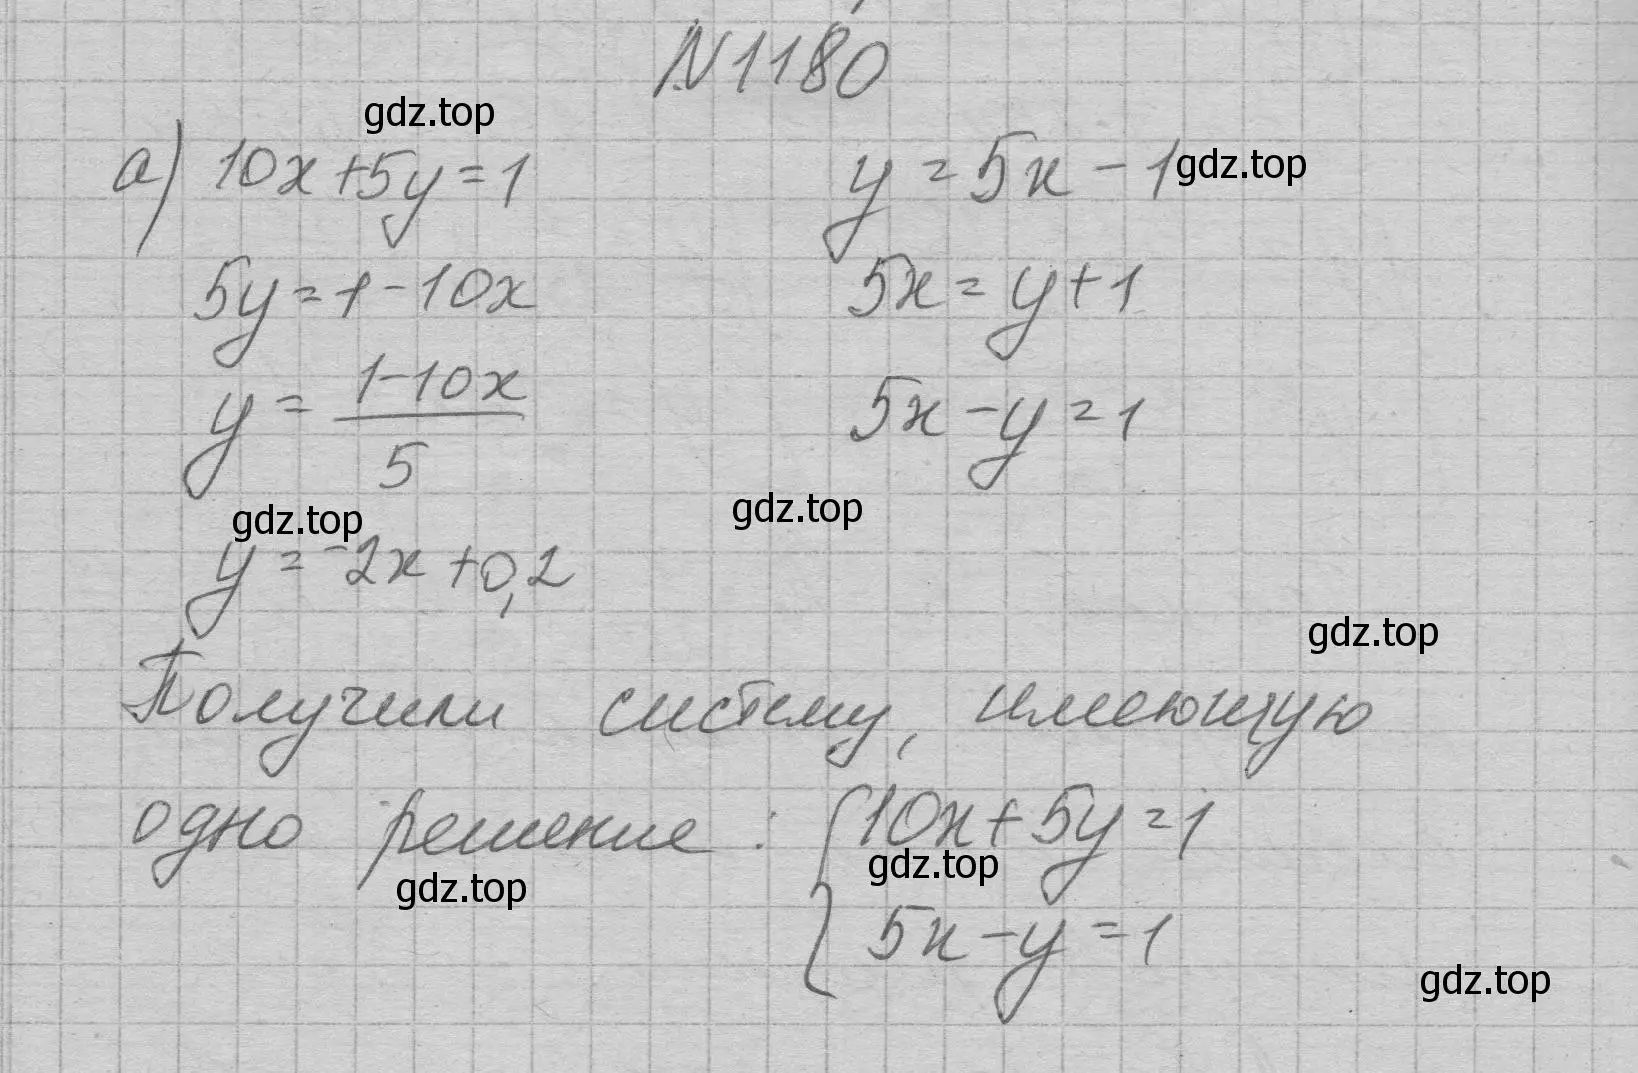 N1180
gdz.top
а) 10x+5y=1 y=5x-1 gdz.top
5y=1-10x 5x=y+1
y=\frac{1-10x}{5} 5x-y=1
gdz.top gdz.top
y=-2x+0,2
gdz.top
Получили систему, имеющую
одно решение: {10x+5y=1
gdz.top gdz.top
5x-y=1
gdz.top